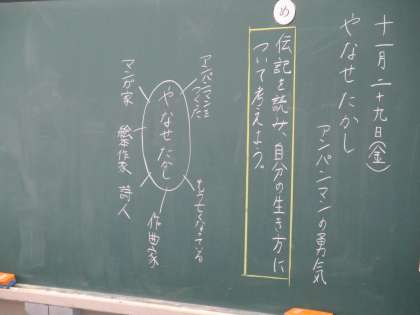 十一月二十九日(金)
やなせたかし
アンパンマンの勇気
め
伝記を読み、自分の生き方に
ついて考えよう。
やなせたかし
アンパンマンを
つくった
もう亡くなっている
マンガ家
絵本作家
詩人
作曲家